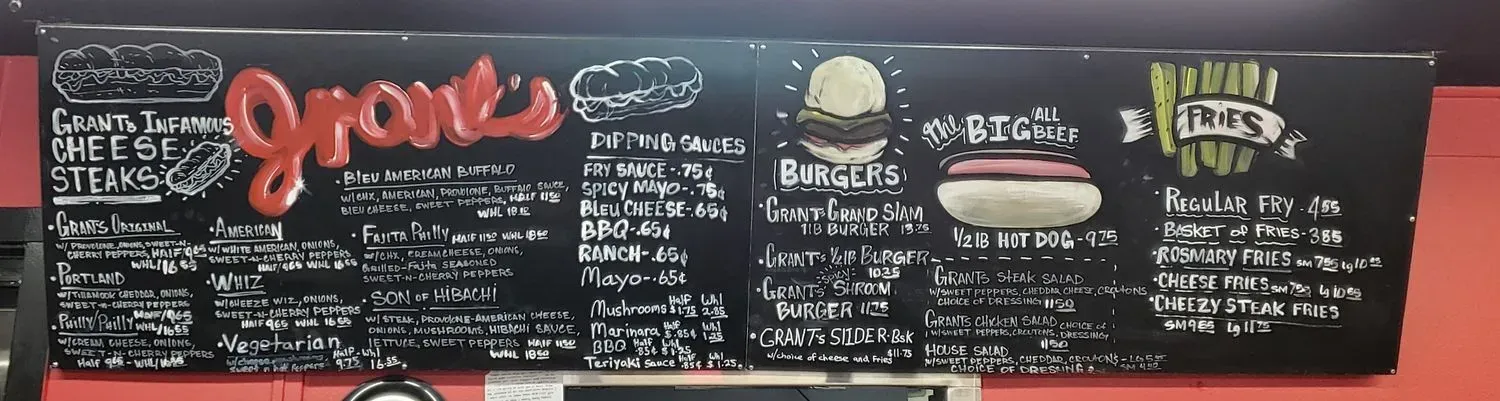 Grant's
GRANTS INFAMOUS
CHEESE
STEAKS
GRANTS ORIGINAL
W/ PROVOLONE, ONIONS, SWEET-N-
CHERRY PEPPERS, HALF/9.65
WHL/16.55
PORTLAND
W/TILLAMOOK CHEDDAR, ONIONS,
SWEET-N-CHERRY PEPPERS
HALF/9.65
PHILLY/PHILLY WHL/16.55
W/CREAM CHEESE, ONIONS,
SWEET-N-CHERRY PEPPERS
Half 9.65 - WHL/16.55
AMERICAN
W/WHITE AMERICAN, ONIONS,
SWEET-N-CHERRY PEPPERS
HALF/9.65 WHL 16.55
WHIZ
W/CHEEZE WIZ, ONIONS,
SWEET-N-CHERRY PEPPERS
HALF 9.65 WHL 16.55
Vegetarian
Half - Whl
16.55
BLEU AMERICAN BUFFALO
W/CHX, AMERICAN, PROVOLONE, BUFFALO SAUCE,
BLEU CHEESE, SWEET PEPPERS, HALF 11.50
WHL
FAJITA PHILLY HALF 11.50 WHL 18.50
W/CHX, CREAM CHEESE, ONIONS,
Grilled-Fajita SEASONED
SWEET-N-CHERRY PEPPERS
SON OF HIBACHI
W/STEAK, PROVOLONE-AMERICAN CHEESE,
ONIONS, MUSHROOMS, HIBACHI SAUCE,
LETTUCE, SWEET PEPPERS HALF 11.50
WHL 18.50
DIPPING SAUCES
FRY SAUCE-.75¢
SPICY MAYO-.75¢
BLEU CHEESE-.65¢
BBQ-.65¢
RANCH-.65¢
Mayo-.65¢
Half Whl
Mushrooms $1.75 2.85
Half Whl
Marinara $.85¢ 1.25
Half Whl
BBQ .85¢ $1.25
Half Whl
Teriyaki Sauce .85¢ $1.25
BURGERS
GRANTS GRAND SLAM
1LB BURGER 13.75
GRANTS 1/2LB BURGER
10.25
GRANTS SHROOM
BURGER 11.75
GRANT'S SLIDER-Bsk
W/choice of cheese and fries $11.75
The BIG ALL
BEEF
1/2 LB HOT DOG-9.75
GRANTS STEAK SALAD
W/SWEET PEPPERS, CHEDDAR CHEESE, CROUTONS
CHOICE OF DRESSING 11.50
GRANTS CHICKEN SALAD CHOICE OF
W/SWEET PEPPERS, CROUTONS, DRESSING,
11.50
HOUSE SALAD
W/SWEET PEPPERS, CHEDDAR, CROUTONS - LG
CHOICE OF DRESSING SM
FRIES
REGULAR FRY - 4.55
BASKET OF FRIES-3.85
ROSMARY FRIES SM 7.55 Lg
CHEESE FRIES SM Lg
CHEEZY STEAK FRIES
SM Lg 11.75